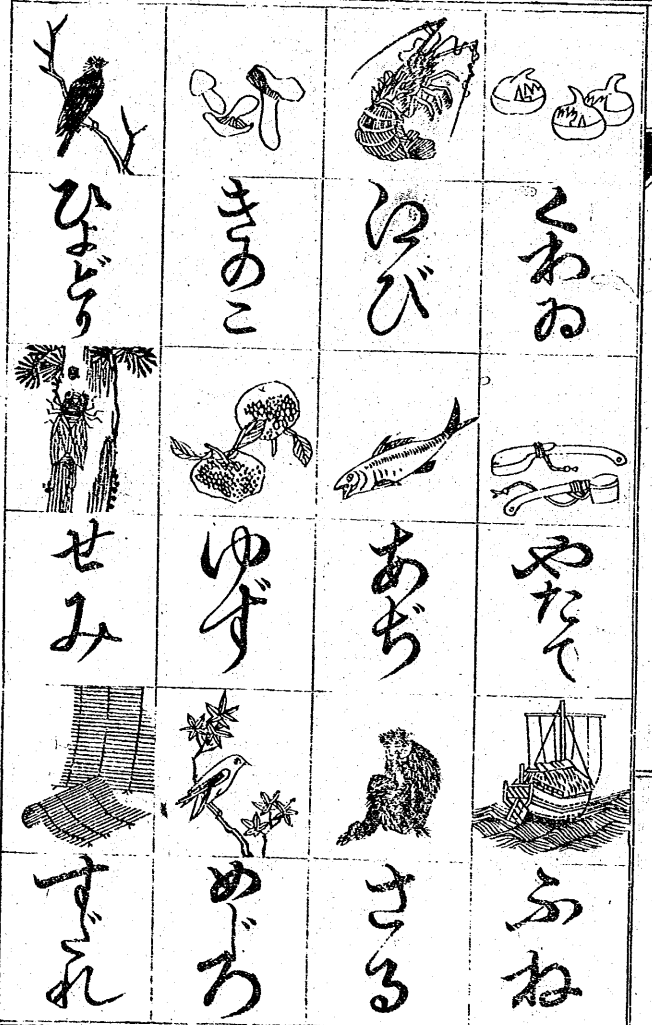 くわゐ
えび
きのこ
ひよどり
やたて
あぢ
ゆず
せみ
ふね
さる
めじろ
すだれ